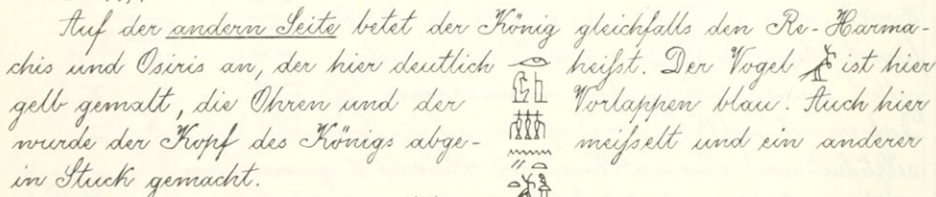 Auf der andern Seite betet der König gleichfalls den Re-Harma-
chis und Osiris an, der hier deutlich heißt. Der Vogel ist hier
gelb gemalt, die Ohren und der Vorlappen blau. Auch hier
wurde der Kopf des Königs abge- meißelt und ein anderer
in Stuck gemacht.